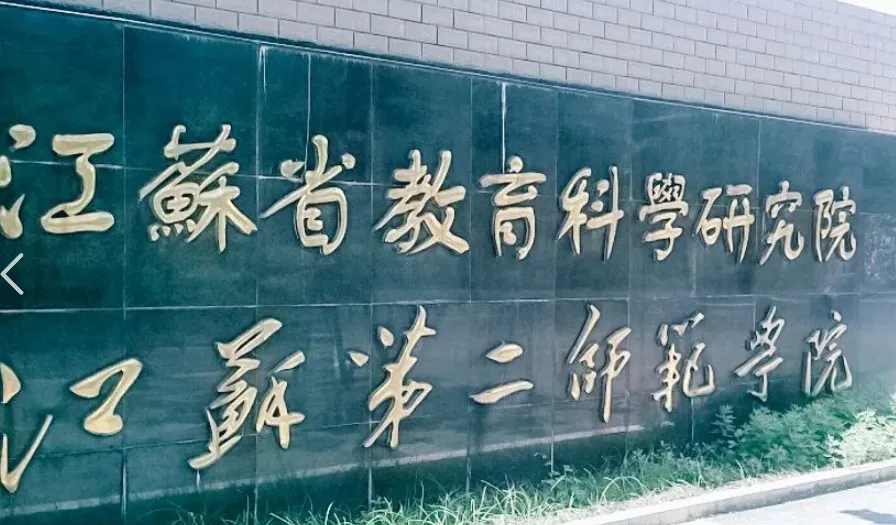 江蘇省教育科學研究院
江蘇第二师範学院